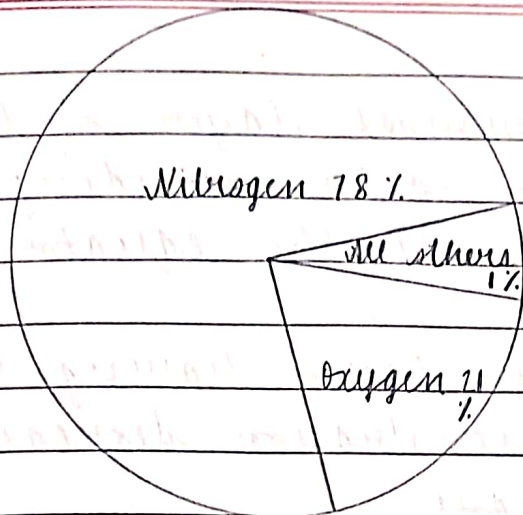 Nitrogen 78 %
All others
1 %
Oxygen 21
%